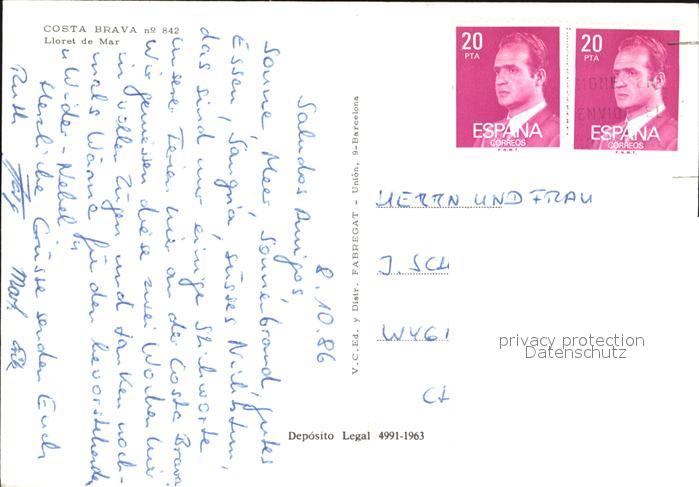 COSTA BRAVA nº 842
Lloret de Mar
8.10.86
Saludos Amigos,
Sonne, Meer, Sonnenbrand, gutes
Essen, Sangria, süsses Nichtstun,
das sind nur einige Stichworte
unserer Ferien hier an der Costa Brava
Wir geniessen diese zwei Wochen hier
in vollen Zügen und tanken noch-
mals Wärme für den bevorstehenden
Winter-Nebel
Herzliche Grüsse senden Euch
Ruth
V.C.Ed. y Distr. FABREGAT - Unión, 9-Barcelona
20
PTA
ESPAÑA
CORREOS
F.N.M.T.
20
PTA
ESPAÑA
CORREOS
F.N.M.T.
HERRN UND FRAU
J. SCH
WYGI
CH
privacy protection
Datenschutz
Depósito Legal 4991-1963